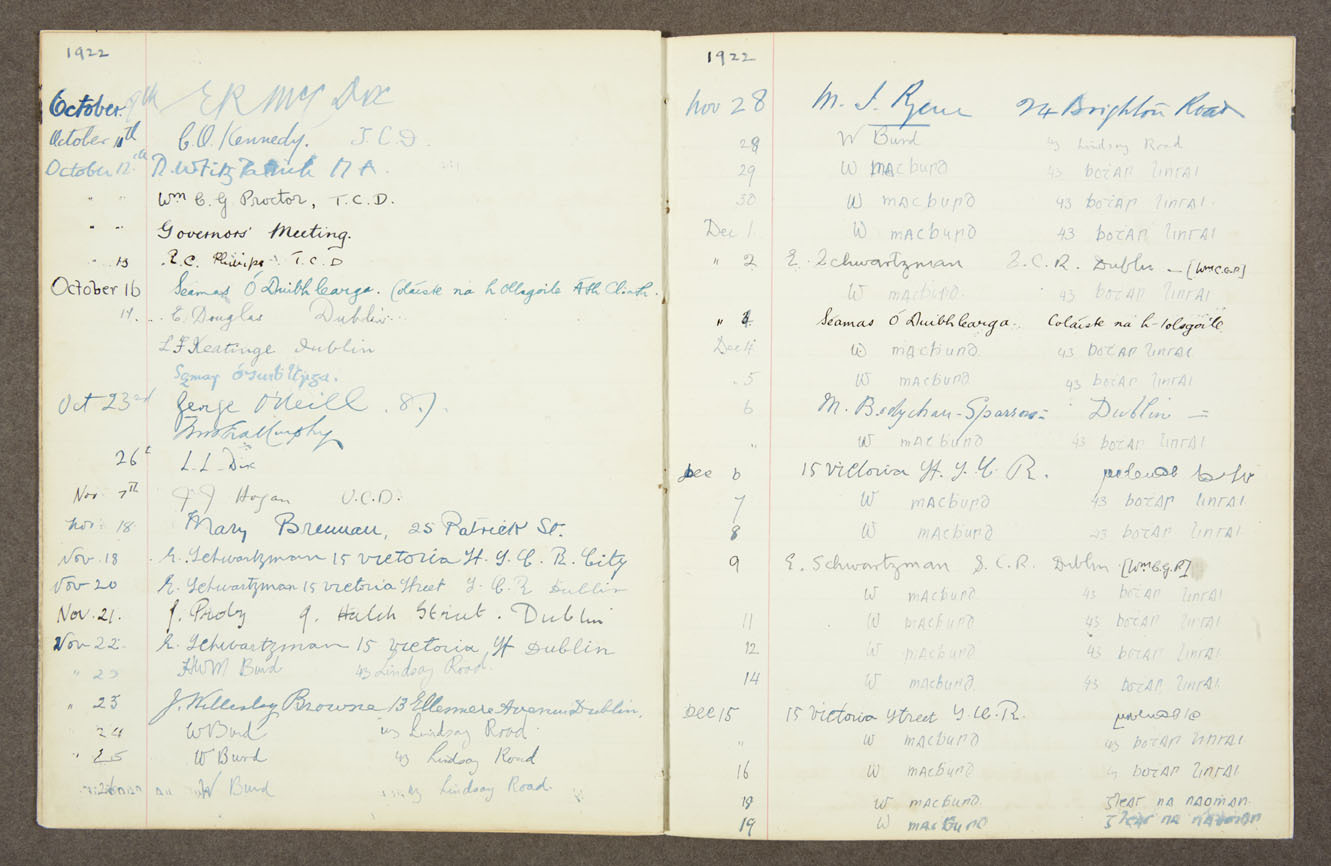 1922
October 9th E R McC Dix
October 11th C. O. Kennedy. T.C.D.
October 12th
" " Wm C. G. Proctor, T.C.D.
" " Governors' Meeting.
" 13 R.C. Phillips T.C.D
October 16 Seamas Ó Duibhlearga. Coláiste na hOllsgoile Áth Cliath.
17. E. Douglas Dublin
L F Keatinge Dublin
Oct 23rd George O'Neill. S.J.
26t L. L. Dix
Nov 7th J J Hogan U.C.D.
Nov. 18 Mary Brennan, 25 Patrick St.
Nov. 18 E. Schwartzman 15 Victoria St. S. C. R. City
Nov 20 E. Schwartzman 15 Victoria Street S. C. R Dublin
Nov. 21. J. 9. Hatch Street. Dublin
Nov 22. E. Schwartzman 15 Victoria St Dublin
" 23 W Burd 43 Lindsay Road.
" 23 J. Wellesley Browne 13 Ellesmere Avenue Dublin.
" 24 W Burd 43 Lindsay Road
" 25 W Burd 43 Lindsay Road
26 W Burd 43 Lindsay Road.
1922
Nov 28 M. J. Ryan 24 Brighton Road
29 W Burd 43 Lindsay Road
29 W macburd 43 bótar lingai
30 W macburd 43 bótar lingai
Dec 1 W macburd 43 bótar lingai
" 2 E. Schwartzman S.C.R. Dublin – [Wm C.G.P]
W macburd. 43 bótar lingai
" 4 Séamas Ó Duibhlearga. Coláiste na h-Iolsgoile
Dec 4 W macburd 43 bótar lingai
" 5 W macburd 43 bótar lingai
6 M. Dublin =
" W macburd 43 bótar lingai
Dec 6 15 Victoria St. S. C. R.
7 W macburd 43 bótar lingai
8 W macburd 43 bótar lingai
9 E. Schwartzman S.C.R. Dublin [Wm C.G.P]
W macburd 43 bótar lingai
11 W macburd 43 bótar lingai
12 W macburd 43 bótar lingai
14 W macburd 43 bótar lingai
Dec 15 15 Victoria Street S. C. R.
" W macburd 43 bótar lingai
16 W macburd 43 bótar lingai
18 W macburd. na naoman
19 W macburd na naoman